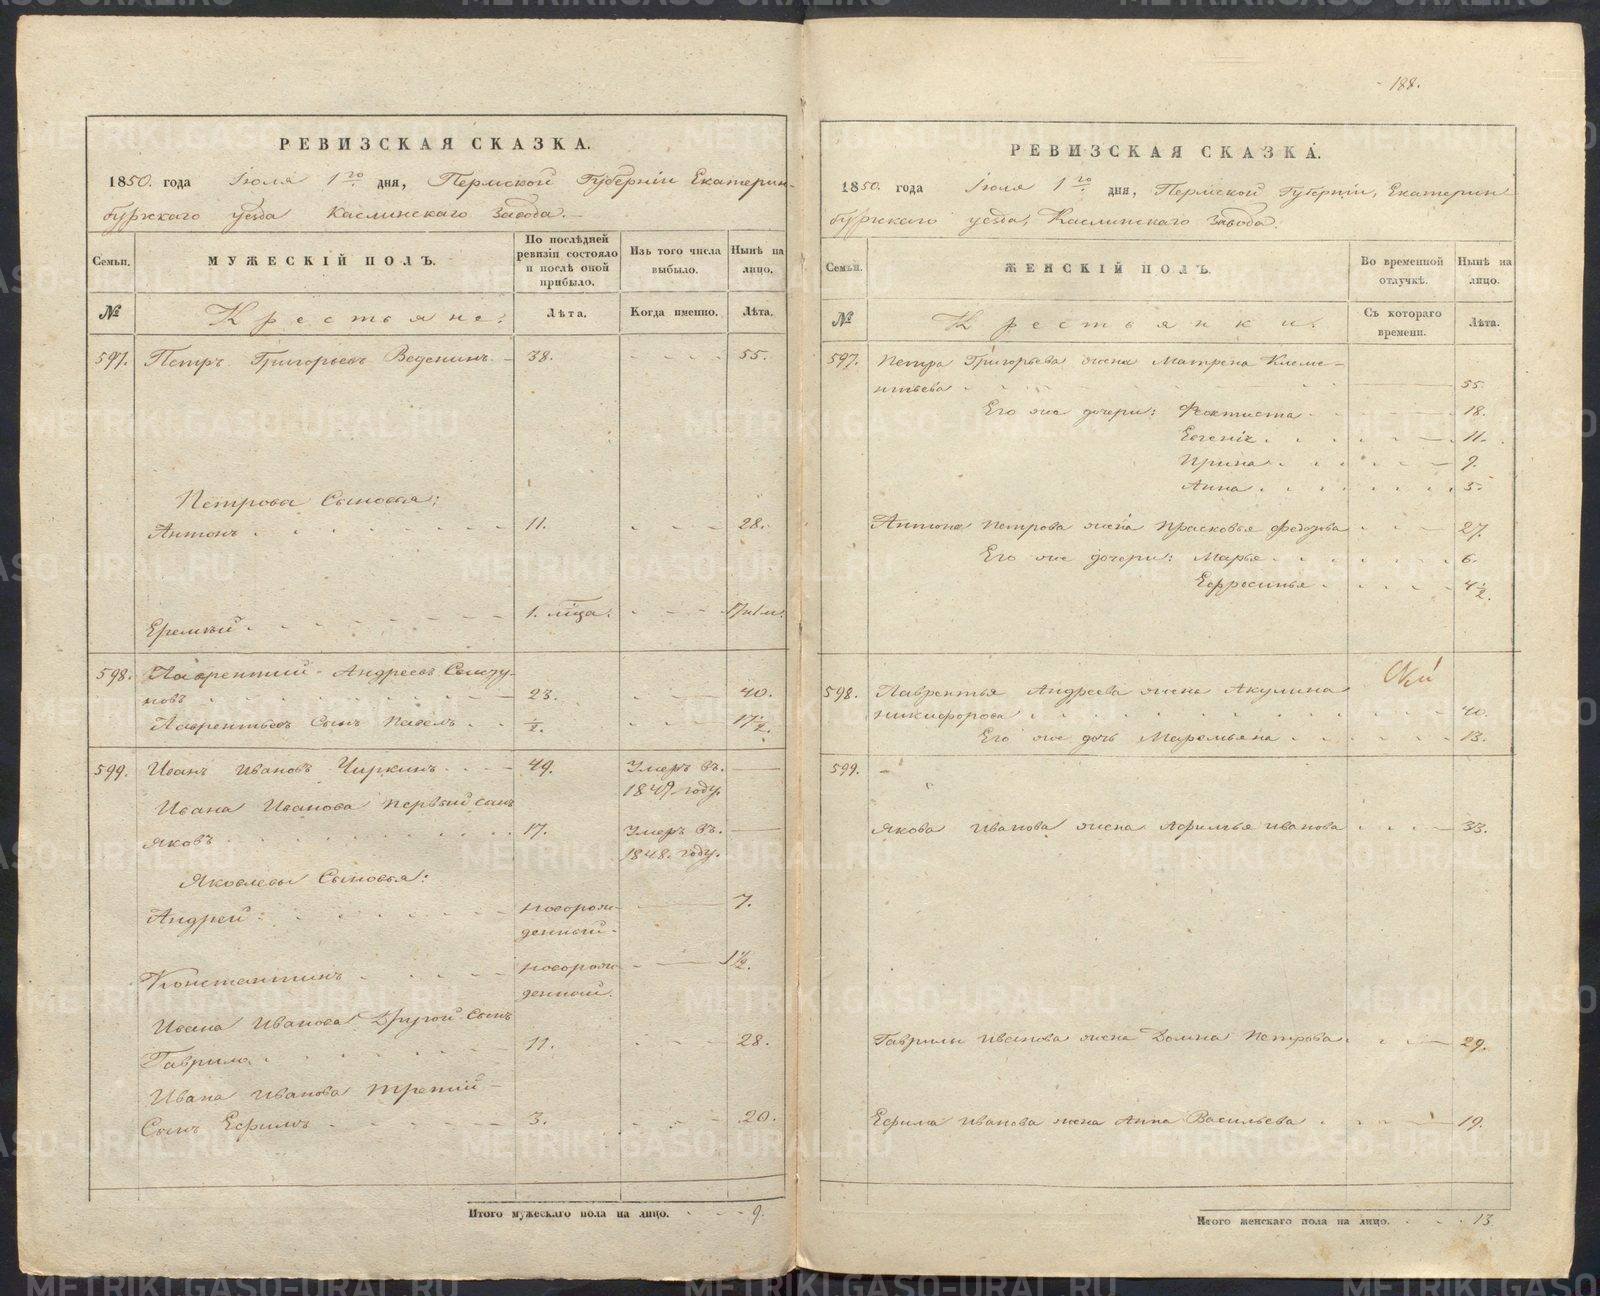 РЕВИЗСКАЯ СКАЗКА.
1850. года Іюля 1го дня, Пермской Губерніи Екатерин-
бургскаго уезда Каслинскаго Завода.
Семьи.
МУЖЕСКІЙ ПОЛЪ.
По послѣдней ревизіи состояло и послѣ оной прибыло.
Изъ того числа выбыло.
Нынѣ на лицо.
№
Крестьяне:
Лѣта.
Когда именно.
Лѣта.
597. Петръ Григорьевъ Веденинъ 38. 55.
Петровы Сыновья:
Антонъ 11. 28.
Еремѣй 1. мѣсца. 17 и 1 м.
598. Лаврентий Андреевъ Селезу-
новъ 23. 40.
Лаврентьевъ Сынъ Павелъ 1/2. 17 1/2.
599. Иванъ Ивановъ Чиркинъ 49. Умеръ въ
1849 году.
Ивана Иванова первый сынъ
Яковъ 17. Умеръ въ
1848. году.
Яковлевы Сыновья:
Андрей новорож-
денный 7.
Константинъ новорож-
денный. 1 1/2.
Ивана Иванова Другой Сынъ
Гаврило 11. 28.
Ивана Иванова третий
Сынъ Ефимъ 3. 20.
Итого мужескаго пола на лицо. 9.
188.
РЕВИЗСКАЯ СКАЗКА.
1850. года Іюля 1го дня, Пермской Губерніи, Екатерин
бургскаго уезда, Каслинскаго Завода.
Семьи.
ЖЕНСКІЙ ПОЛЪ.
Во временной отлучкѣ.
Нынѣ на лицо.
№
Крестьянки:
Съ котораго времени.
Лѣта.
597. Петра Григорьева жена Матрена Клеме-
нтьева 55.
Его же дочери: Феоктиста 18.
Евгенія 11.
Ирина 9.
Анна 5.
Антона Петрова жена Прасковья Федорова 27.
Его же дочери: Марья 6.
Ефросинья 4 1/2.
598. Лаврентья Андреева жена Акулина
Никифорова 40.
Его же дочь Маремьяна 13.
599.
Якова Иванова жена Афимья Иванова 33.
Гаврилы Иванова жена Домна Петрова 29.
Ефима Иванова жена Анна Васильева 19.
Итого женскаго пола на лицо. 13
METRIKI.GASO-URAL.RU